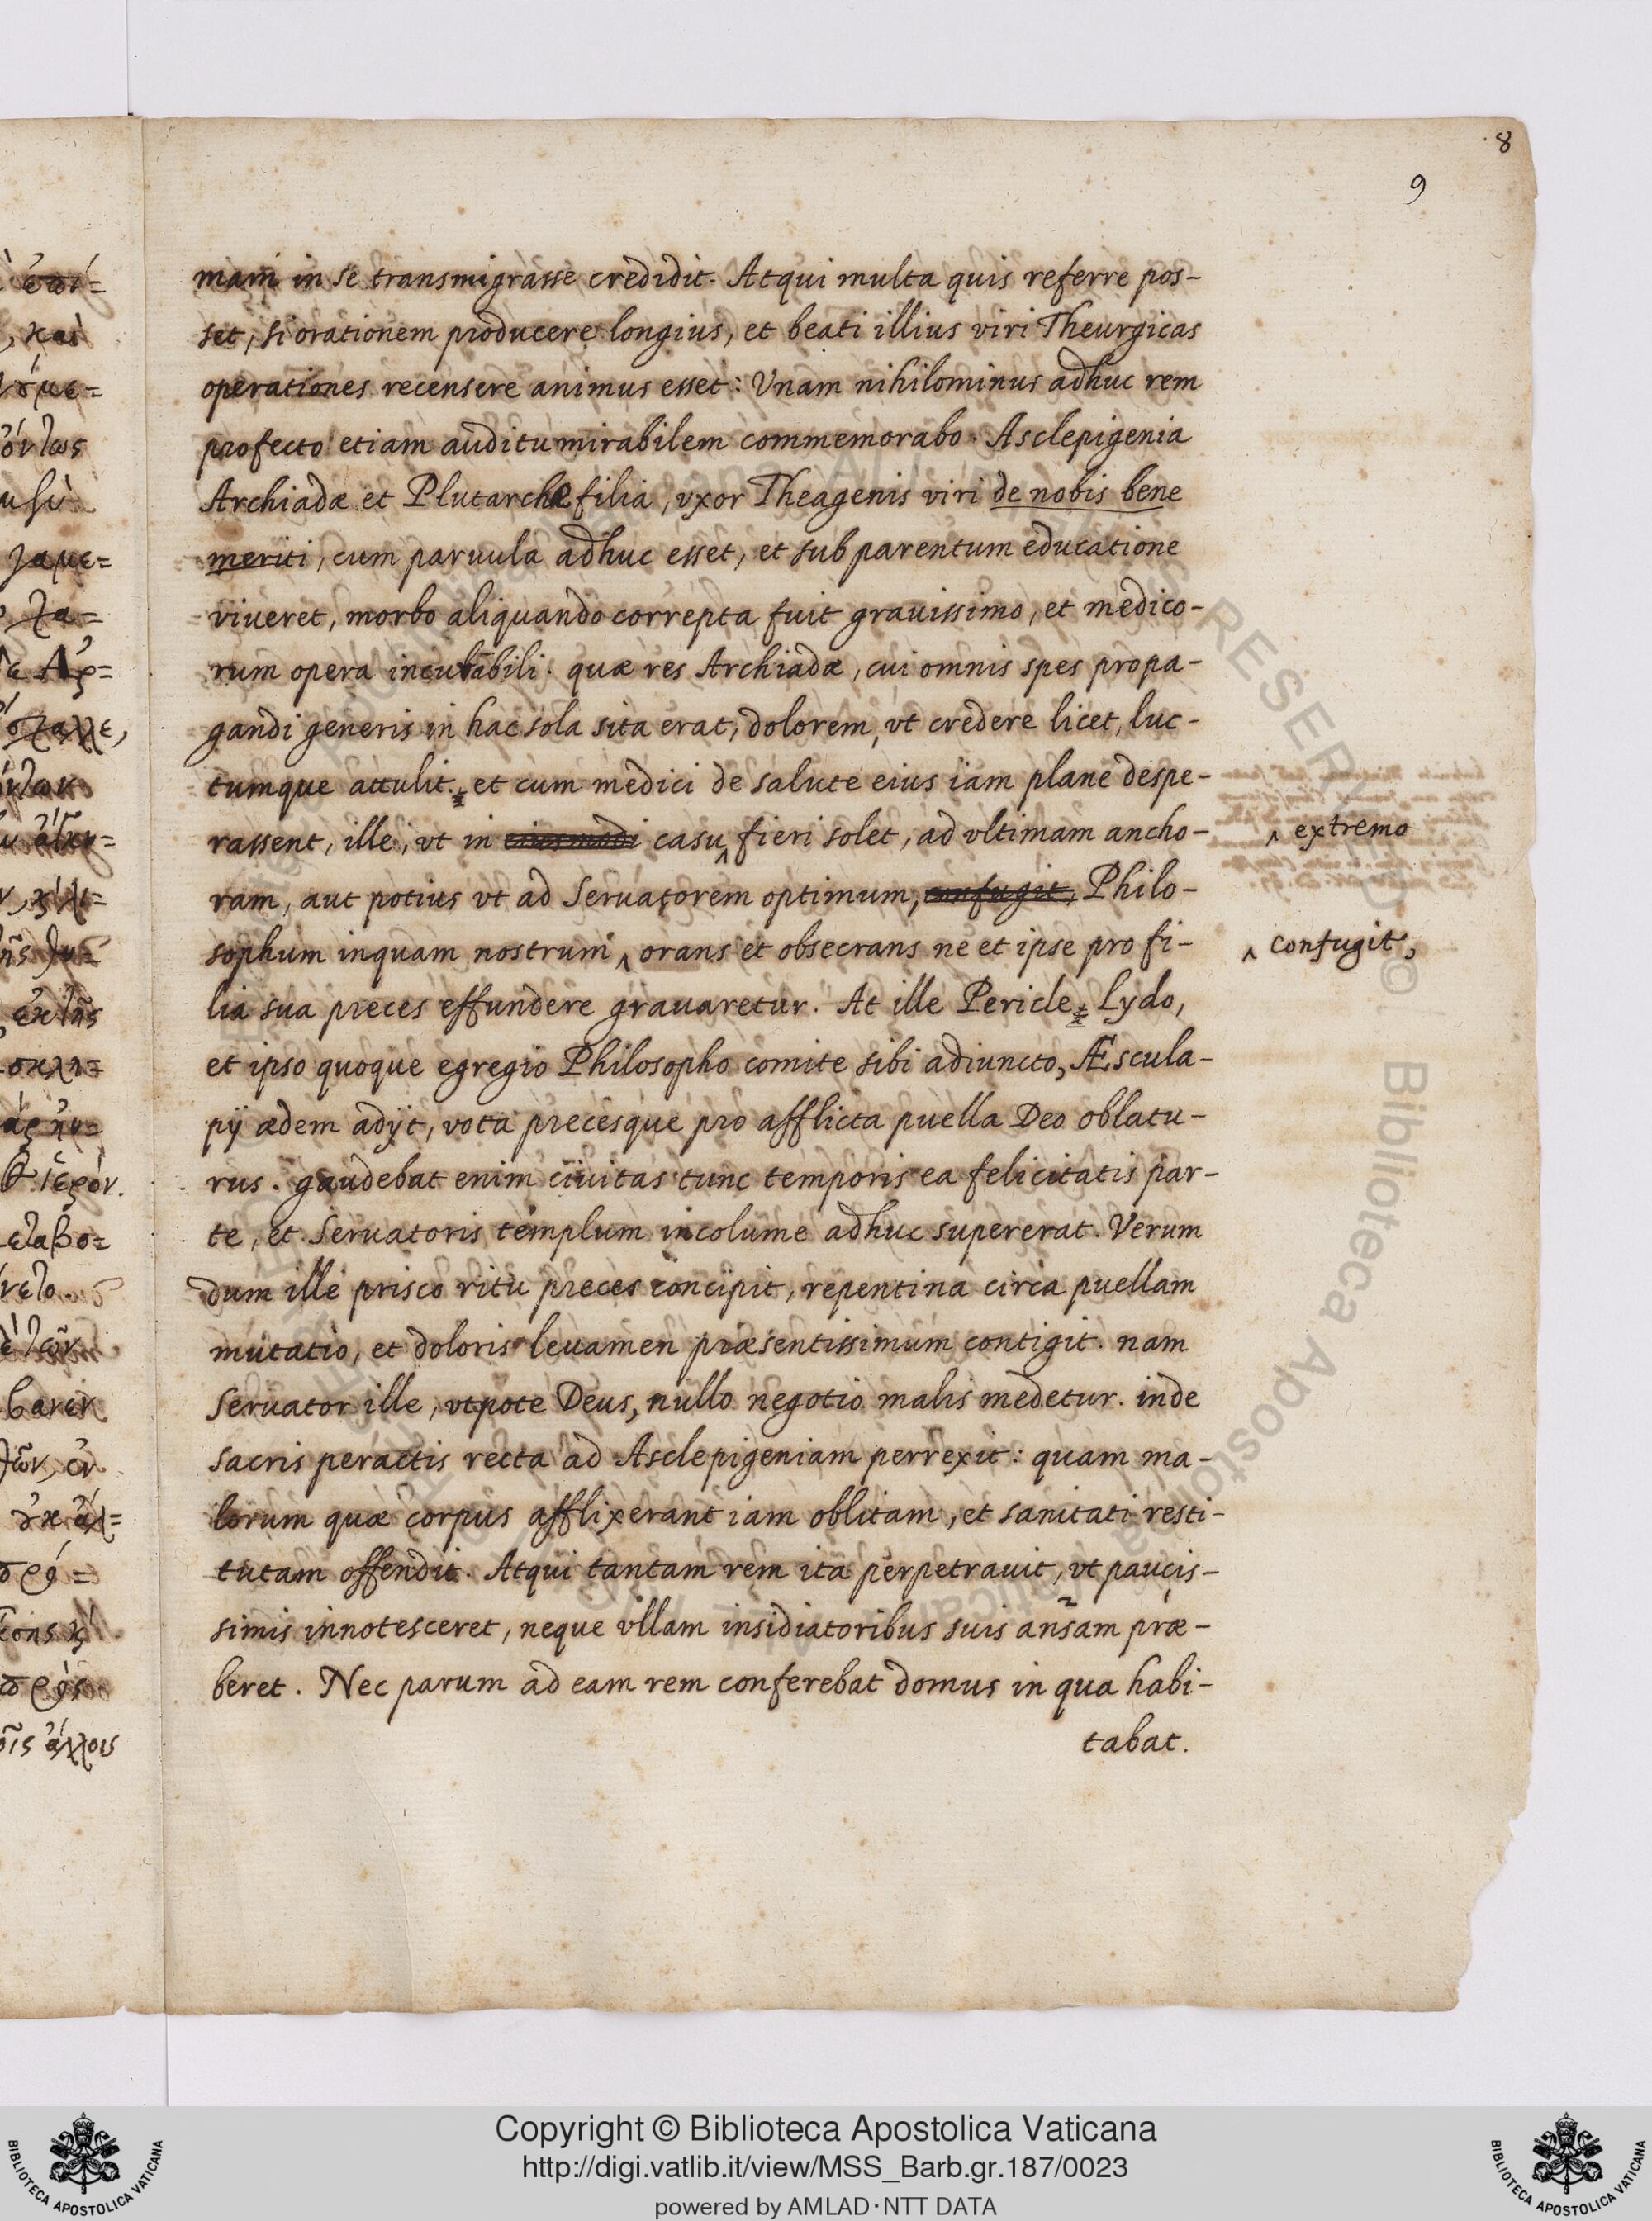 8
9
mam in se transmigrasse credidit. Atqui multa quis referre pos-
set, si orationem producere longius, et beati illius viri Theurgicas
operationes recensere animus esset: Vnam nihilominus adhuc rem
profecto etiam auditu mirabilem commemorabo. Asclepigenia
Archiadæ et Plutarche filia, vxor Theagenis viri de nobis bene
meriti, cum paruula adhuc esset, et sub parentum educatione
viueret, morbo aliquando correpta fuit grauissimo, et medico-
rum opera incurabili. quæ res Archiadæ, cui omnis spes propa-
gandi generis in hac sola sita erat, dolorem, vt credere licet, luc-
tumque attulit. et cum medici de salute eius iam plane despe-
rassent, ille, vt in eiusmodi casu ^ fieri solet, ad vltimam ancho-
^ extremo
ram, aut potius vt ad Seruatorem optimum, confugit, Philo-
sophum inquam nostrum ^ orans et obsecrans ne et ipse pro fi-
^ confugit,
lia sua preces effundere grauaretur. At ille Pericle Lydo,
et ipso quoque egregio Philosopho comite sibi adiuncto, Æscula-
pij ædem adijt, vota precesque pro afflicta puella Deo oblatu-
rus. gaudebat enim ciuitas tunc temporis ea felicitatis par-
te, et Seruatoris templum incolume adhuc supererat. Verum
dum ille prisco ritu preces concipit, repentina circa puellam
mutatio, et doloris leuamen præsentissimum contigit. nam
Seruator ille, vtpote Deus, nullo negotio malis medetur. inde
sacris peractis recta ad Asclepigeniam perrexit: quam ma-
lorum quæ corpus afflixerant iam oblitam, et sanitati resti-
tutam offendit. Atqui tantam rem ita perpetrauit, vt paucis-
simis innotesceret, neque vllam insidiatoribus suis ansam præ-
beret. Nec parum ad eam rem conferebat domus in qua habi-
tabat.
Copyright © Biblioteca Apostolica Vaticana
http://digi.vatlib.it/view/MSS_Barb.gr.187/0023
powered by AMLAD·NTT DATA
BIBLIOTECA APOSTOLICA VATICANA
BIBLIOTECA APOSTOLICA VATICANA